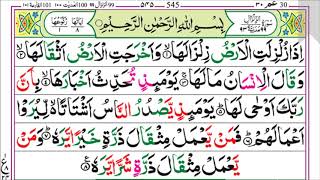 545
بِسْمِ اللّٰهِ الرَّحْمٰنِ الرَّحِيْمِ
اِذَا زُلْزِلَتِ الْاَرْضُ زِلْزَالَهَا ۙ وَاَخْرَجَتِ الْاَرْضُ اَثْقَالَهَا ۙ
وَقَالَ الْاِنْسَانُ مَا لَهَا ۚ يَوْمَئِذٍ تُحَدِّثُ اَخْبَارَهَا ۙ بِاَنَّ
رَبَّكَ اَوْحٰى لَهَا ؕ يَوْمَئِذٍ يَّصْدُرُ النَّاسُ اَشْتَاتًا ۙ لِّيُرَوْا
اَعْمَالَهُمْ ؕ فَمَنْ يَّعْمَلْ مِثْقَالَ ذَرَّةٍ خَيْرًا يَّرَهٗ ؕ وَمَنْ
يَّعْمَلْ مِثْقَالَ ذَرَّةٍ شَرًّا يَّرَهٗ